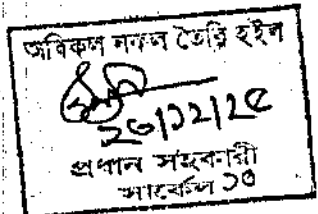 অবিকল নকল তৈরি হইল
২৩/১২/২৫
প্রধান সহকারী
সার্কেল ১৩